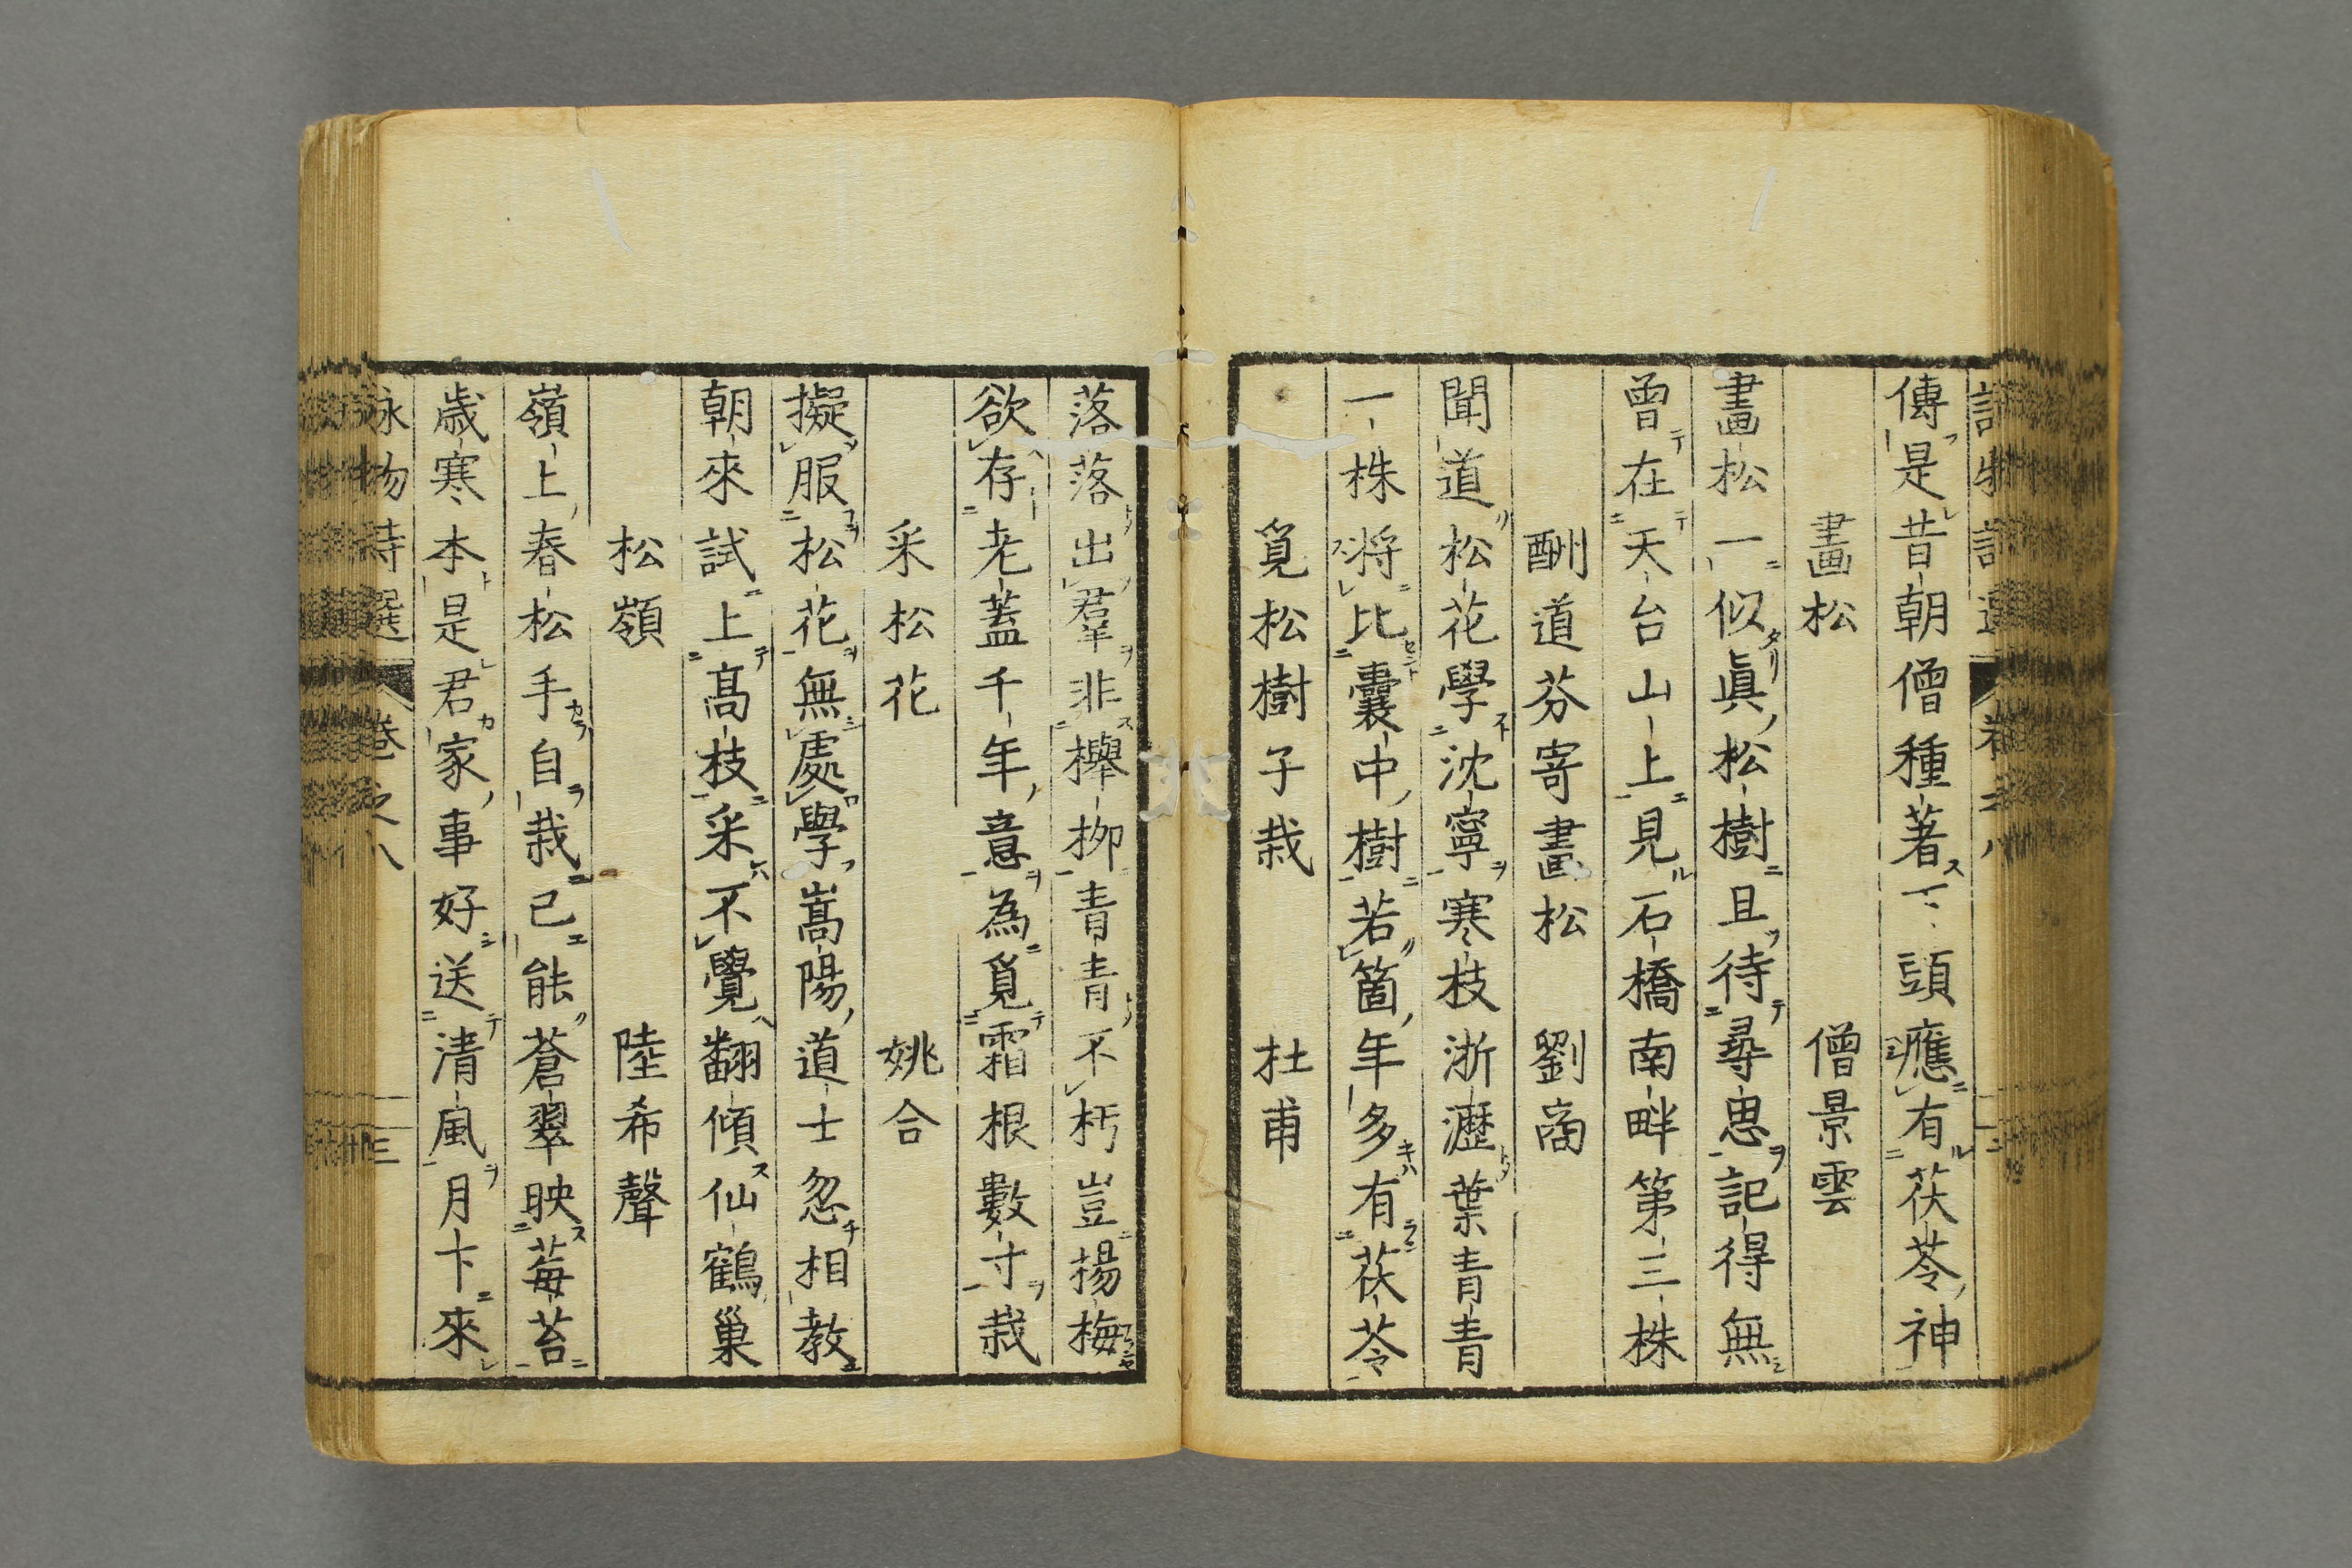 傳是昔朝僧種著下頭應有茯苓神
畫松 僧景雲
畫松一似眞松樹且待尋思記得無
曾在天台山上見石橋南畔第三株
酬道芬寄畫松 劉商
聞道松花學沈寧寒枝淅瀝葉青青
一株将比囊中樹若箇年多有茯苓
覓松樹子栽 杜甫
落落出羣非欅柳青青不朽豈揚梅
欲存老蓋千年意為覓霜根數寸栽
采松花 姚合
擬服松花無處學嵩陽道士忽相教
朝來試上髙枝采不覺翻傾仙鶴巢
松嶺 陸希聲
嶺上春松手自栽已能蒼翠映莓苔
歳寒本是君家事好送清風月下來
詠物詩選 卷之八